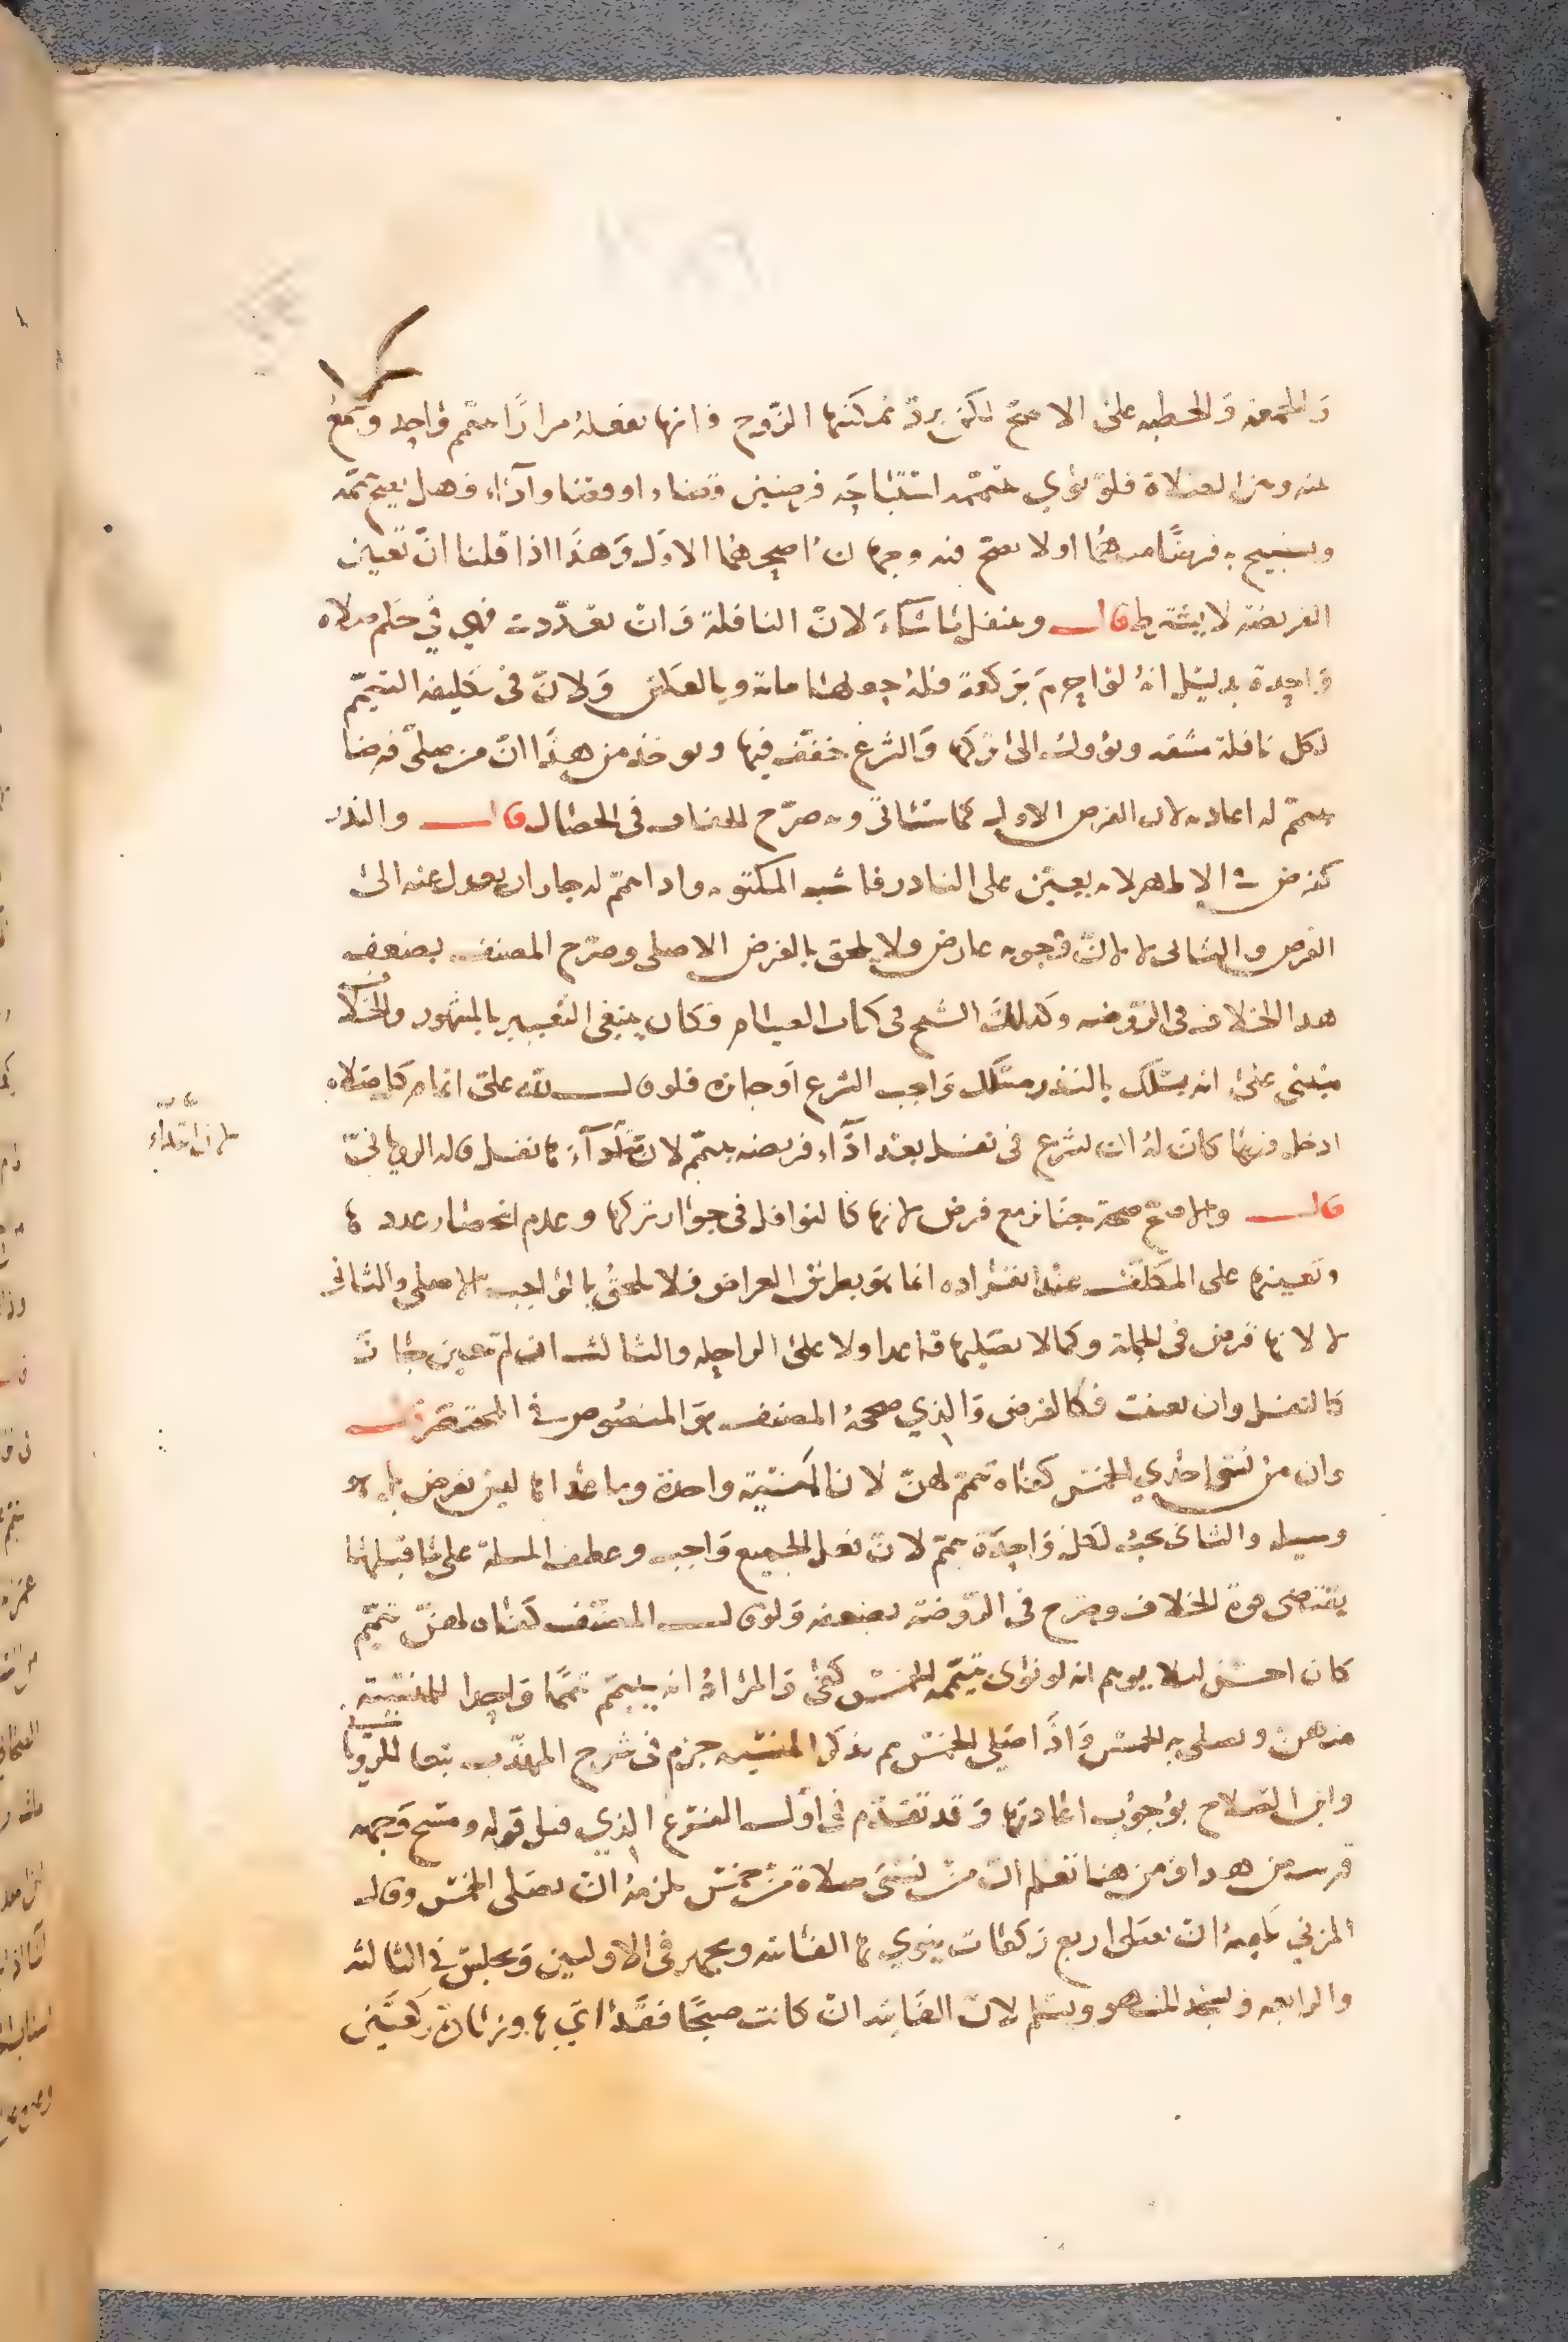 والجمعة والخطبة على الاصح لكن يرد تمكينها الزوج فانها تفعله مرارا بتيمم واحد وتجمع
عنه وبين الصلاة فلو نوى بتيممه استباحة فرضين قضاء او وقتا واداء فهل يصح تيممه
ويستبيح به فرضا منهما او لا يصح فيه وجهان اصحهما الاول وهذا اذا قلنا ان تعيين
الفريضة لا يشترط قال ويتنفل ما شاء لان النافلة وان تعددت فهي في حكم صلاه
واحدة بدليل انه لو احرم بركعة فله جعلها مائة وبالعكس ولان في تكليفه التيمم
لكل نافلة مشقه ويؤول الى تركها والشرع خفف فيها ويوخذ من هذا ان من صلى فرضا
بتيمم له اعادته لان الفرض الاولى كما سياتي وبه صرح الخفاف في الخصال قال والنذر
كفرض في الاظهر لانه يتعين على الناذر فاشبه المكتوبه واذا تيمم له جاز ان يعدل عنه الى
الفرض والثاني لا لان وجوبه عارض ولا يلحق بالفرض الاصلي وصرح المصنف بضعف
هذا الخلاف في الروضه وكذلك الشيخ في كتاب الصيام فكان ينبغي التعبير بالمشهور والخلاف
مبني على انه يسلك بالنذر مسلك واجب الشرع او جائزه فلو قال لله علي اتمام كل صلاه
ادخل فيها كان له ان يشرع في نفل بعد اداء فريضه بتيمم لان ابتداءها نفل قاله الروياني
قال والاصح صحة جنائز مع فرض لانها كالنوافل في جواز تركها وعدم انحصار عددها
وتعينها على المكلف عند انفراده انما هو بطريق العرض فلا يلحق بالواجب الاصلي والثاني
لا لانها فرض في الجملة وكما لا يصليها قاعدا ولا على الراحله والثالث ان لم تتعين كانت
كالنفل وان تعينت فكالفرض والذي صححه المصنف هو المنصوص في المختصر قال
وان من نسي احدي الخمس كفاه تيمم لهن لان المنسية واحدة وما عداها ليس بفرض بل هو
وسيله والثاني يجب لكل واحدة تيمم لان فعل الجميع واجب وعطف المسلة على ما قبلها
يقتضى قوة الخلاف وصرح في الروضة بضعفه ولو قال المصنف كفاه لهن تيمم
كان احسن ليلا يوهم انه لو نوى بتيممه الخمس كفى والمراد انه يتيمم تيمما واحدا للمنسية
منهن ويصلي به الخمس واذا صلى الخمس ثم تذكر المنسيه جزم في شرح المهذب تبعا للروياني
وابن الصلاح بوجوب اعادتها وقد تقدم في اول الفرع الذي قبل قوله ومسح وجهه
قريب من هذا ومن هنا تعلم ان من نسي صلاة من خمس يلزمه ان يصلي الخمس وقال
المزني يكفيه ان يصلى اربع ركعات ينوي بها الفائته ويجهر في الاوليين ويجلس في الثالثه
والرابعه ويسجد للسهو ويسلم لان الفائته ان كانت صبحا فقد اتى بها وزيادة ركعتين
لان ابتداء